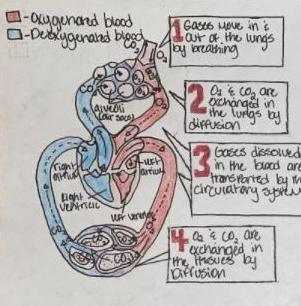 -Oxygenated blood
-Deoxygenated blood
1 Gases move in &
out of the lungs
by breathing
CO₂
O₂
Alveoli
(air sacs)
2 O₂ & CO₂ are
exchanged in
the lungs by
diffusion
3 Gases dissolved
in the blood are
transported by th
circulatory system
right
atrium
left
atrium
Right
ventricle
left ventricle
CO₂
O₂
4 O₂ & CO₂ are
exchanged in
the tissues by
diffusion